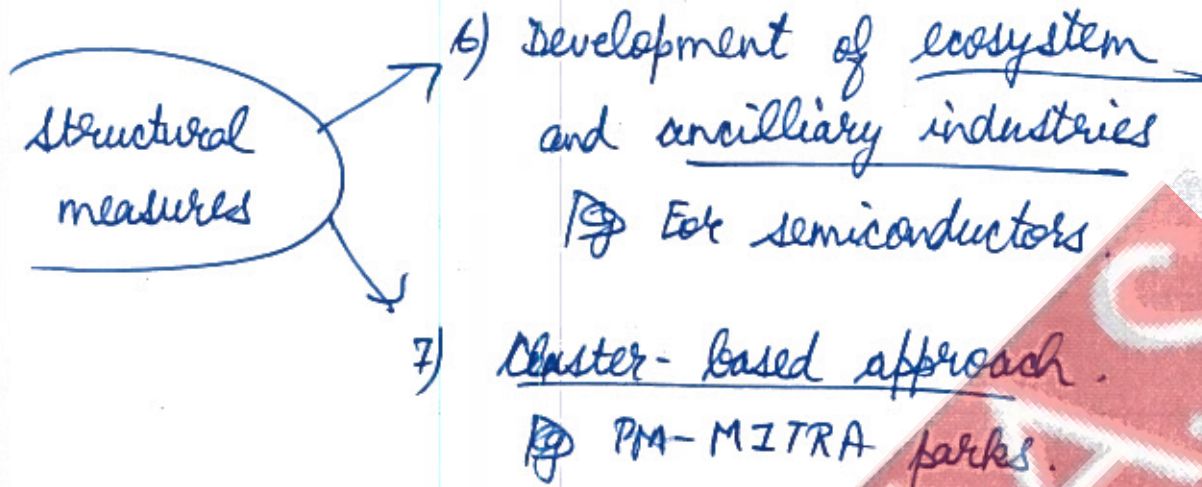 Structural
measures
6) Development of ecosystem
and ancilliary industries
Eg For semiconductors.
7) Cluster-based approach.
Eg PM-MITRA parks.